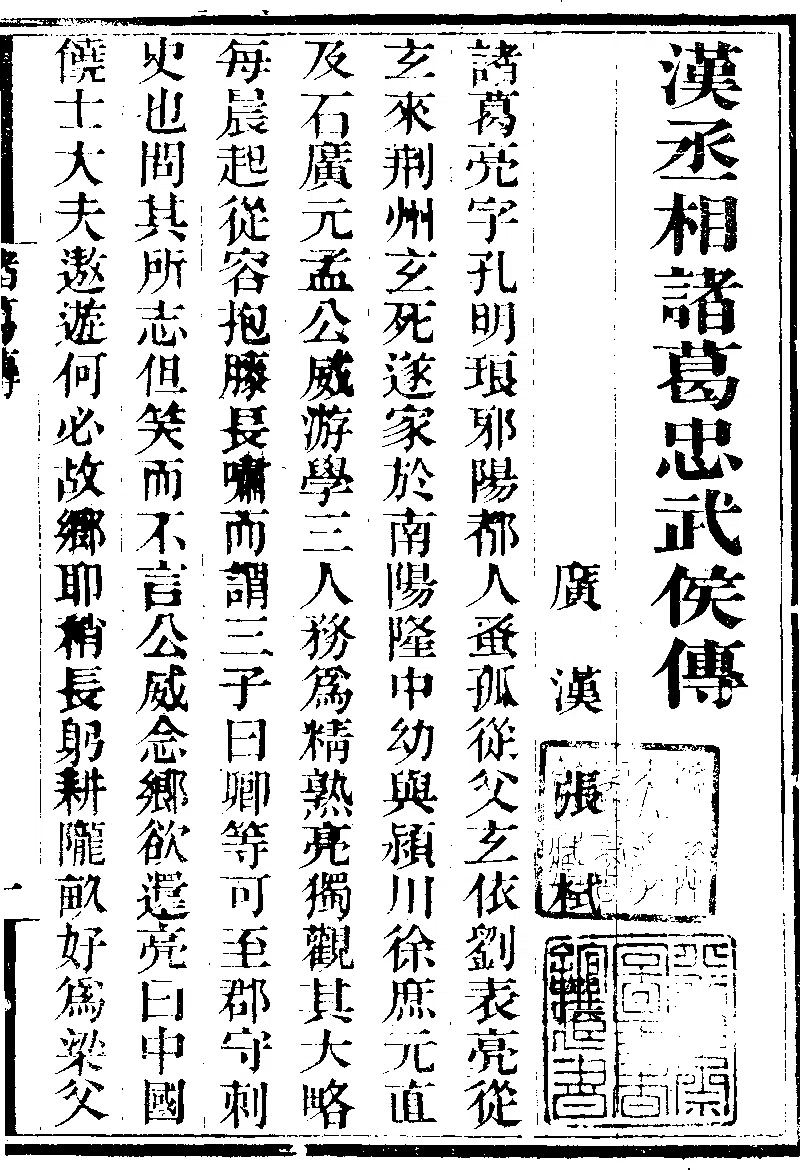 漢丞相諸葛忠武侯傳
廣漢張栻撰
諸葛亮字孔明琅邪陽都人蚤孤從父玄依劉表亮從
玄來荆州玄死遂家於南陽隆中幼與潁川徐庶元直
及石廣元孟公威游學三人務爲精熟亮獨觀其大略
每晨起從容抱膝長嘯而謂三子曰卿等可至郡守刺
史也問其所志但笑而不言公威念鄉欲還亮曰中國
饒士大夫遨遊何必故鄉耶稍長躬耕隴畝好爲梁父
諸葛傳
一